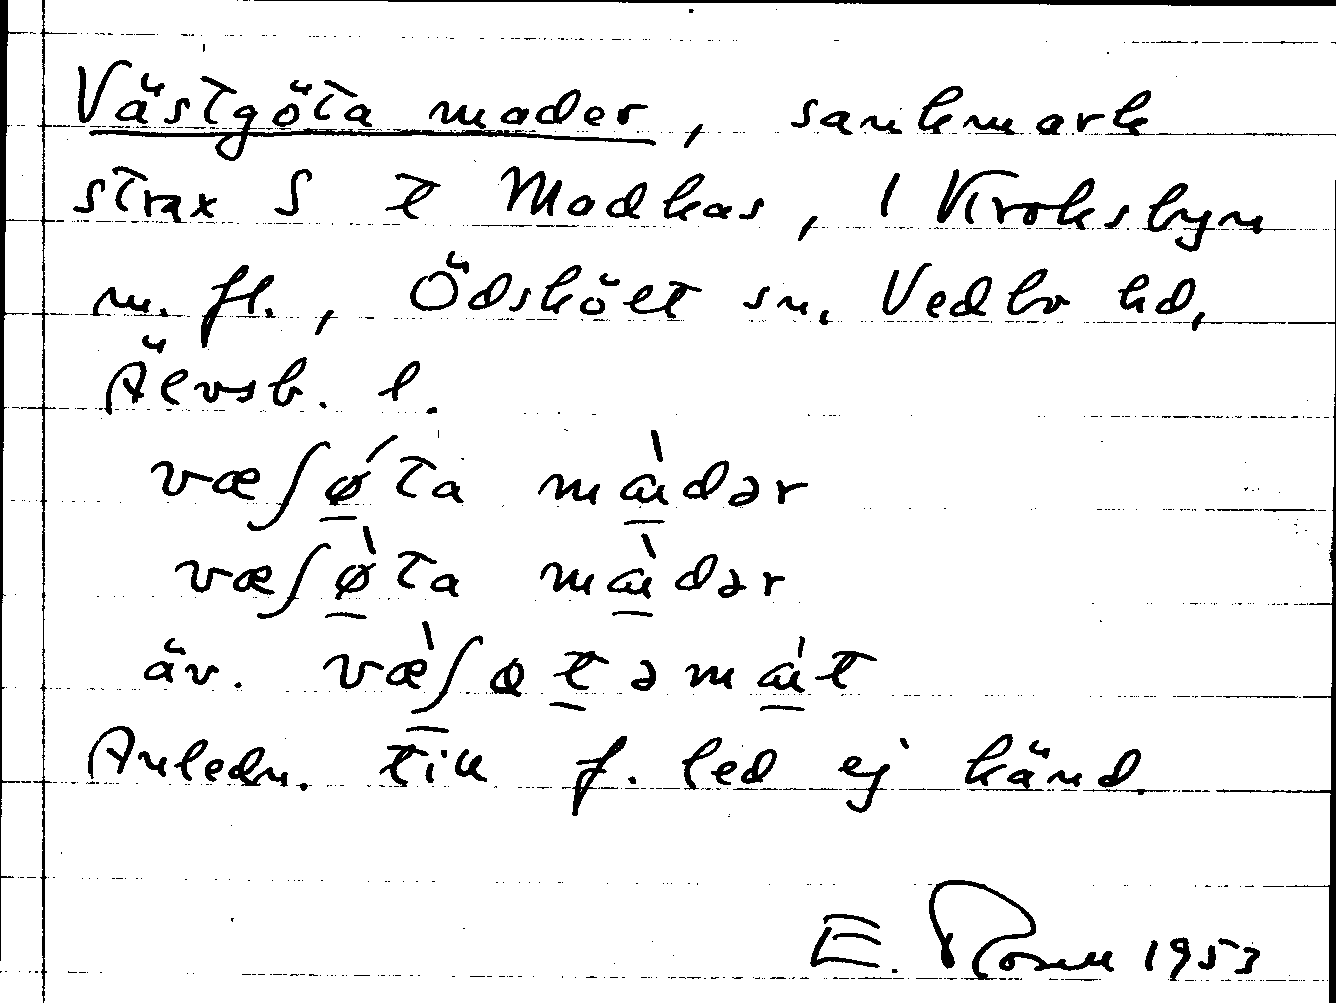 Västgöta mader, sankmark
strax S t Madkas, l Kroksbyn
m. fl., Ödskölt sn, Vedbo hd,
Älvsb. l.
væʃǿta mɑ̀dər
væʃø̀ta mɑ̀dər
äv. væ̀ʃøtəmɑ̀t
Anledn. till f. led ej känd.
E. 1953